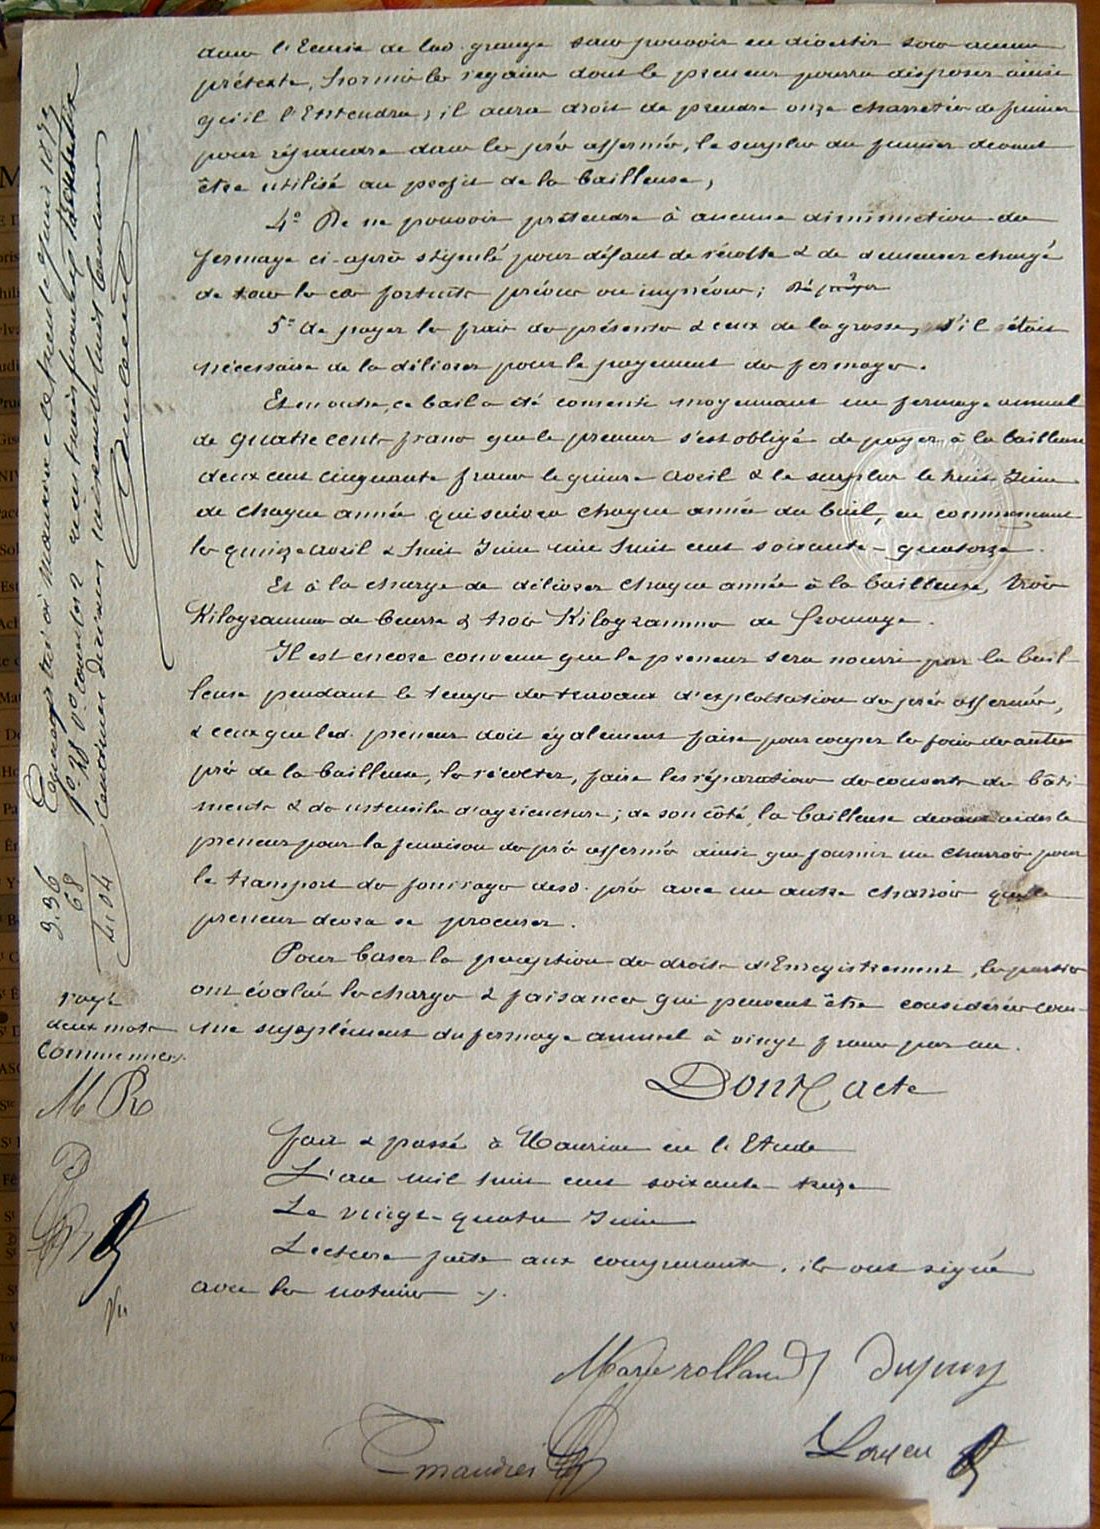 dans l'Ecurie de lad. grange sans pouvoir en divertir sous aucun
prétexte, hormis les regains dont le preneur pourra disposer ainsi
qu'il l'Entendra; il aura droit de prendre onze charretées de fumier
pour répandre dans les prés affermés, le surplus du fumier devant
être utilisé au profit de la bailleuse,
4° De ne pouvoir prétendre à aucune diminution du
fermage ci-après stipulé pour défaut de récolte & de demeurer chargé
de tous les cas fortuits prévus ou imprévus;
5° de payer les frais des présentes & ceux de la grosse, s'il était
nécessaire de la délivrer pour le payement du fermage.
Et en outre, ce bail a été consenti moyennant un fermage annuel
de quatre cents francs que le preneur s'est obligé de payer à la bailleuse
deux cent cinquante francs le quinze avril & le surplus le huit Juin
de chaque année qui suivra chaque année du bail, en commençant
les quinze avril & huit Juin mil huit cent soixante-quatorze.
Et à la charge de délivrer chaque année à la bailleuse, trois
Kilogrammes de beurre & trois Kilogrammes de fromage.
Il est encore convenu que le preneur sera nourri par la bail-
leuse pendant le temps des travaux d'exploitation des prés affermés,
& ceux que led. preneur doit également faire pour couper les foins des autres
prés de la bailleuse, les récolter, faire les réparations des couverts des bâti-
ments & des ustensiles d'agriculture; de son côté, la bailleuse devra aider le
preneur pour la fenaison des prés affermés ainsi que fournir un charroir pour
le transport des fourrages desd. prés avec un autre charroir que le
preneur devra se procurer.
Pour baser la perception des droits d'Enregistrement, les parties
ont évalué les charges & faisances qui peuvent être considérées com-
me supplément du fermage annuel à vingt francs par an.
Dont acte
Fait & passé à Mauriac en l'Etude
L'an mil huit cent soixante-treize
Le vingt-quatre Juin
Lecture faite aux comparants, ils ont signé
avec les notaires
Marie rolland Dupuy
Enregistré à Mauriac le trente Juin 1873
f° 28 v° case 2 reçu trois francs
centimes décimes soixante huit centimes
3.36
68
4.04
rayé
deux mots
commencés.
M R
D